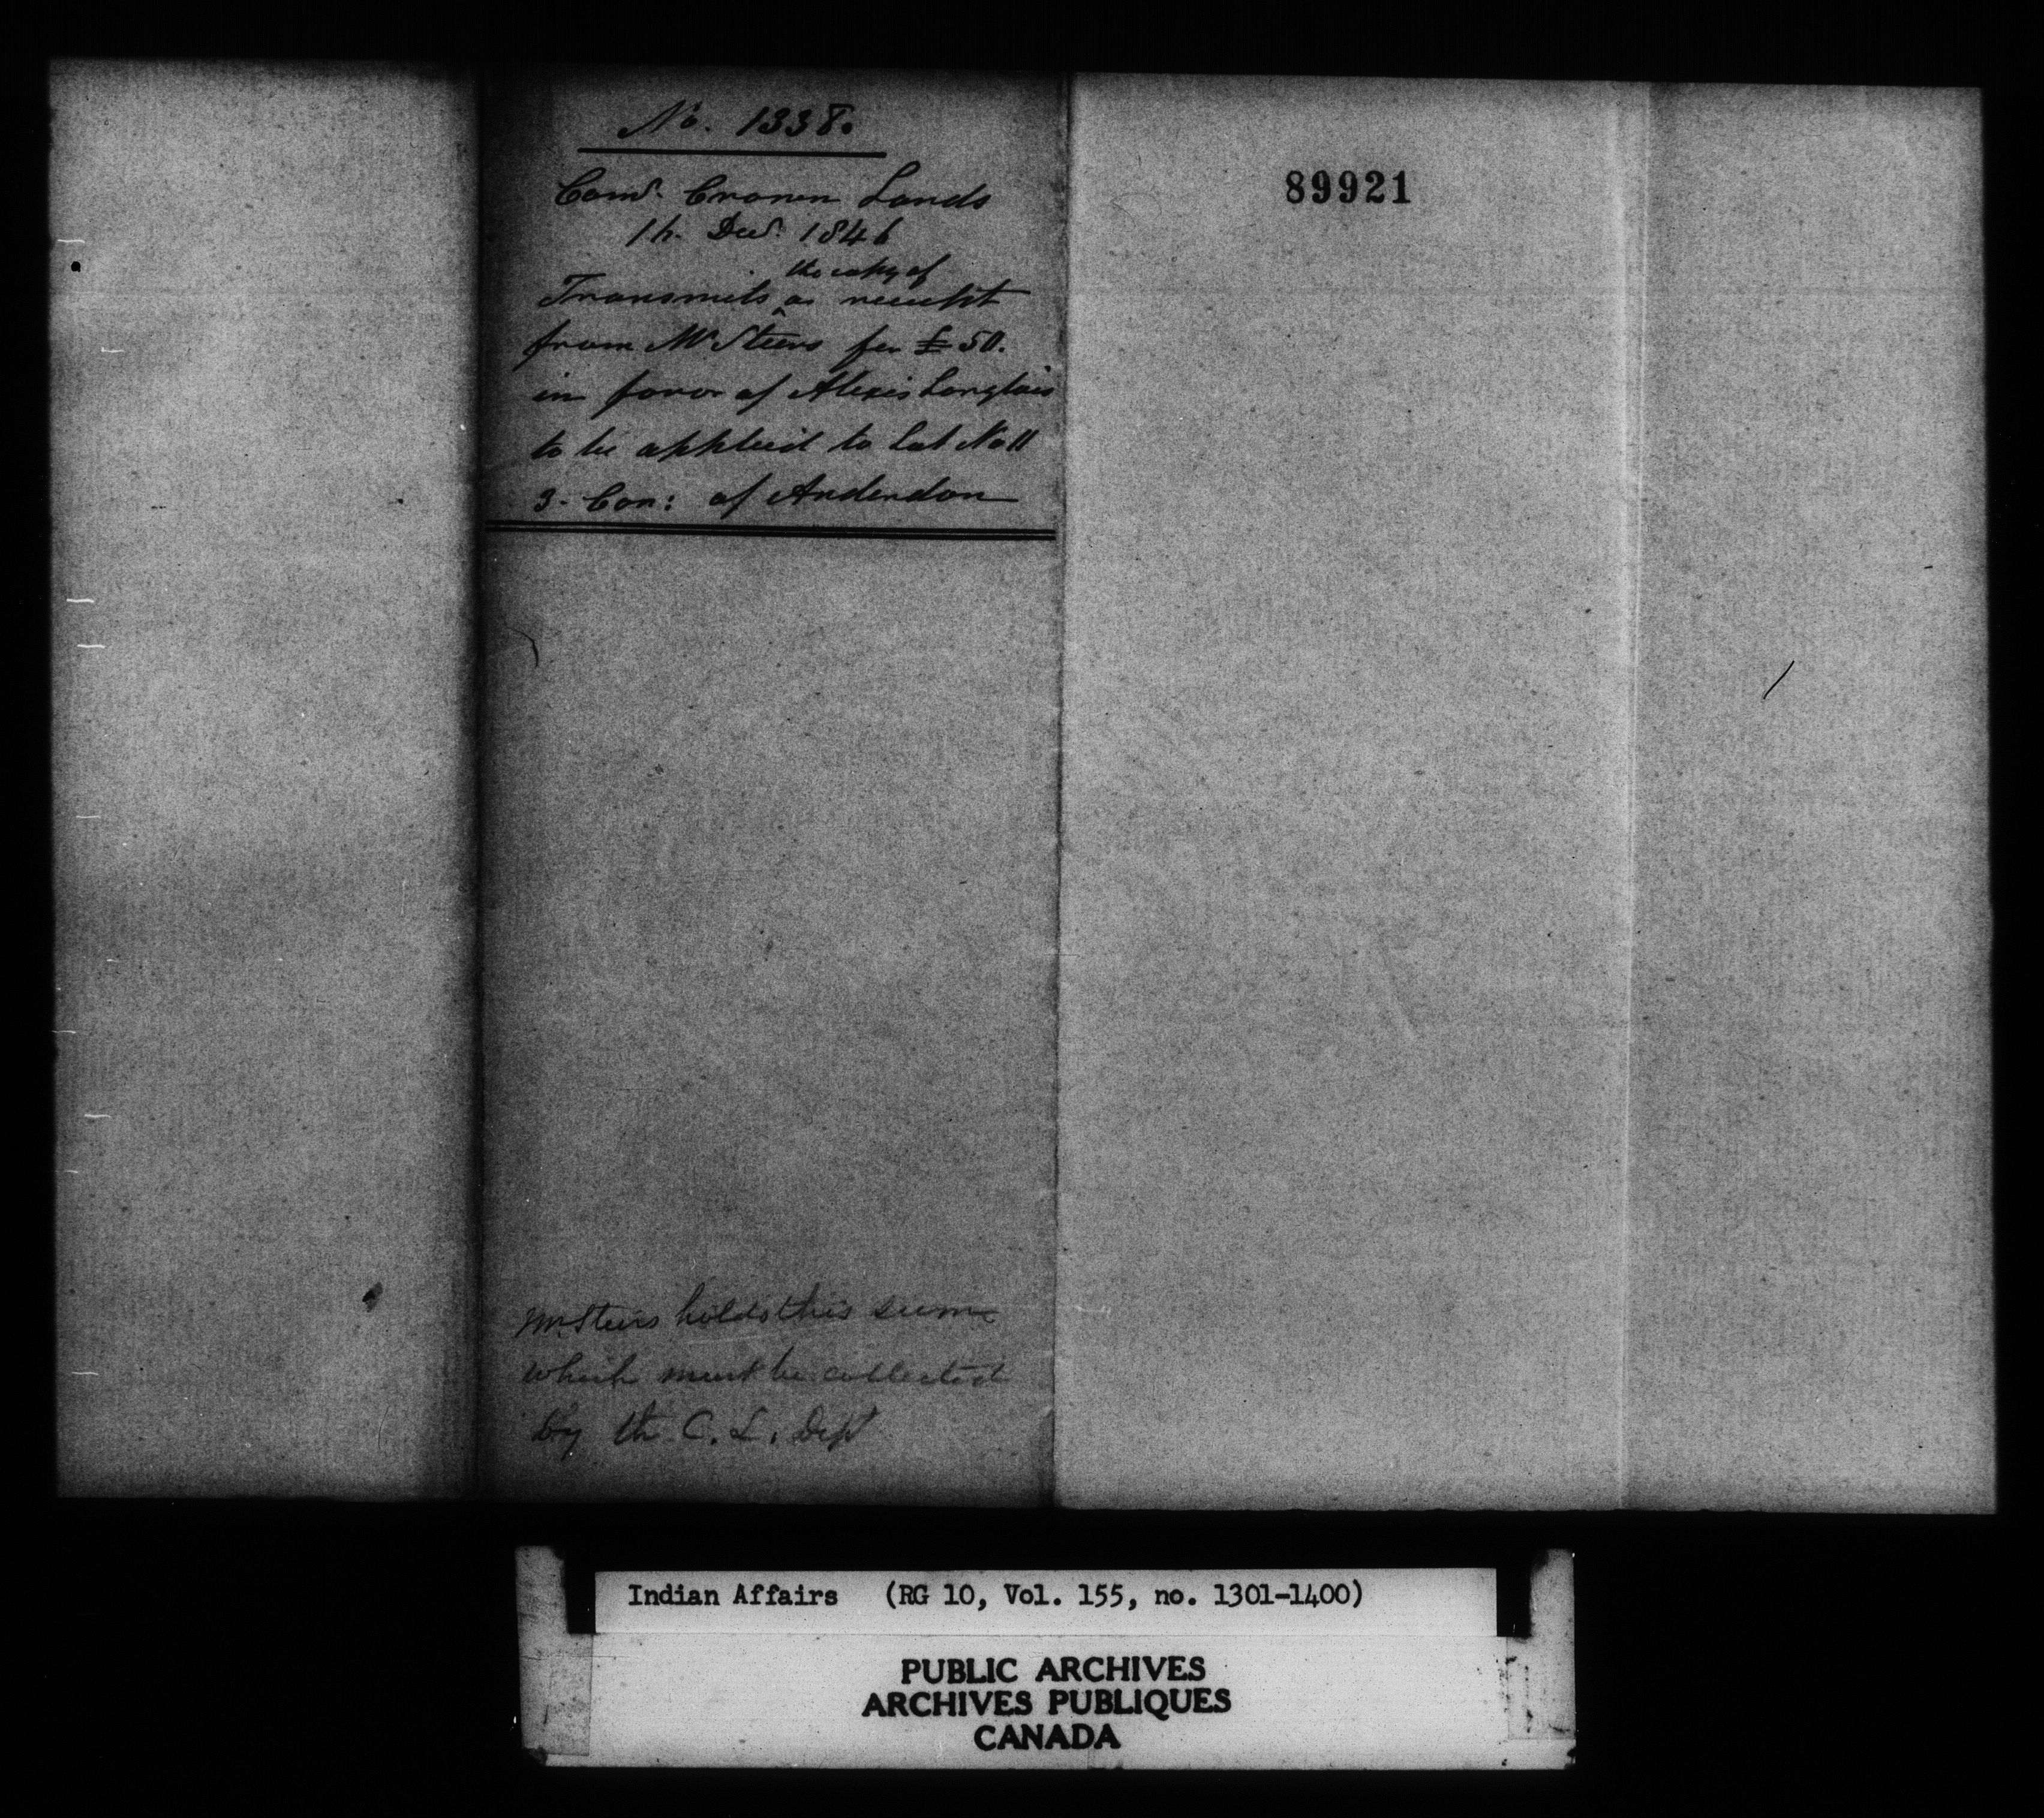 No. 1338.
Comr. Crown Lands
16. Decr. 1846
the copy of
Transmits ^ a receipt
from Mr Steers for £50.
in favor of Alexis Langlais
to be applied to Lot No 11
3. Con: of Anderdon
Mr. Steers holds this sum
which must be collected
by the C. L. Dept
89921
Indian Affairs (RG 10, Vol. 155, no. 1301-1400)
PUBLIC ARCHIVES
ARCHIVES PUBLIQUES
CANADA